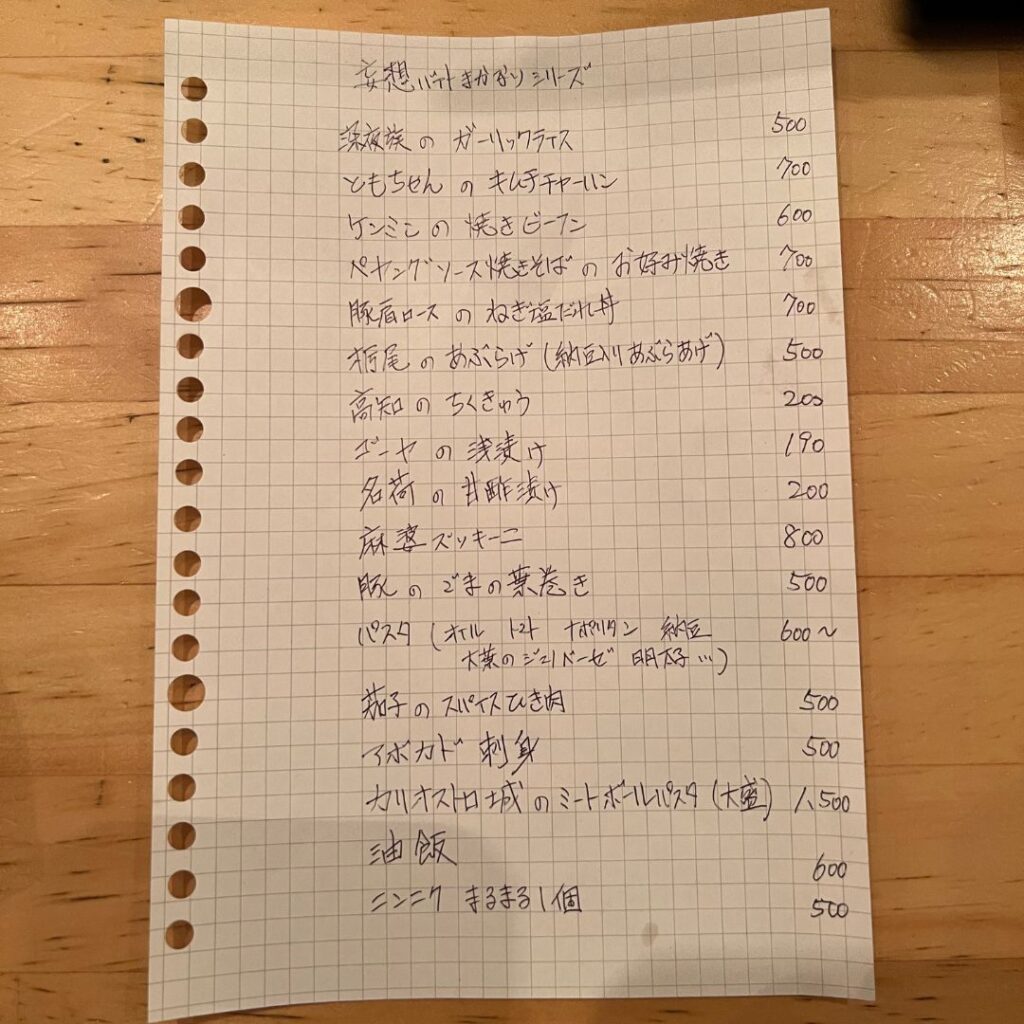 妄想バイトまかないシリーズ
深夜族の ガーリックライス 500
ともちゃん の キムチチャーハン 700
ケンミン の 焼きビーフン 600
ペヤングソース焼きそばの お好み焼き 700
豚肩ロース の ねぎ塩だれ丼 700
栃尾 の あぶらげ (納豆入りあぶらあげ) 500
高知 の ちくきゅう 200
ゴーヤ の 浅漬け 190
名荷 の 甘酢漬け 200
麻婆ズッキーニ 800
豚 の ごまの葉巻き 500
パスタ (オイル トマト ナポリタン 納豆 600〜
大葉のジェノベーゼ 明太子…)
茄子 の スパイスひき肉 500
アボカド 刺身 500
カリオストロ城 の ミートボールパスタ (大盛) 1,500
油飯 600
ニンニク まるまる1個 500